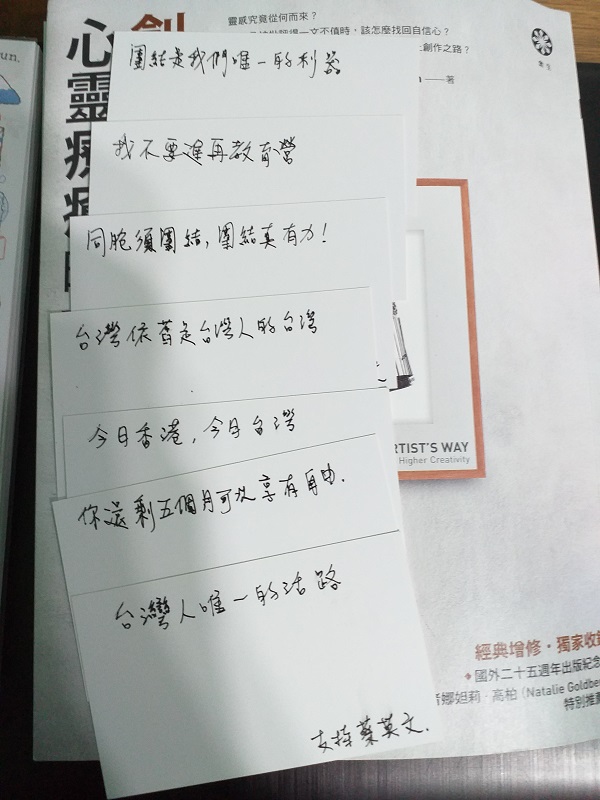 un.
創
心靈療癒
靈感究竟從何而來？
一文不值時，該怎麼找回自信心？
創作之路？
著
團結是我們唯一的利器
我不要進再教育營
同胞須團結，團結真有力！
台灣依舊是台灣人的台灣
今日香港，今日台灣
你還剩五個月可以享有自由.
台灣人唯一的活路
支持蔡英文.
ARTIST'S WAY
Higher Creativity
經典增修・獨家收
國外二十五週年出版紀念
娜妲莉・高柏（Natalie Goldbe
特別推薦